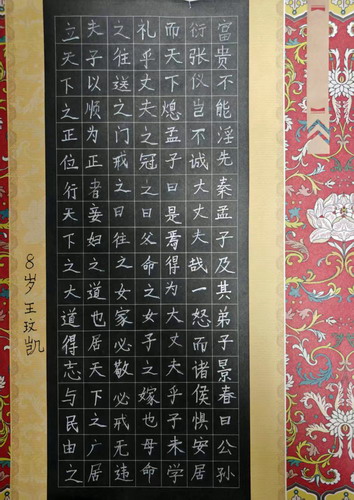 富贵不能淫先秦孟子及其弟子景春曰公孙
衍张仪岂不诚大丈夫哉一怒而诸侯惧安居
而天下熄孟子曰是焉得为大丈夫乎子未学
礼乎丈夫之冠之曰父命之女子之嫁也母命
之往送之门戒之曰往之女家必敬必戒无违
夫子以顺为正者妾妇之道也居天下之广居
立天下之正位行天下之大道得志与民由之
8岁王玟凯